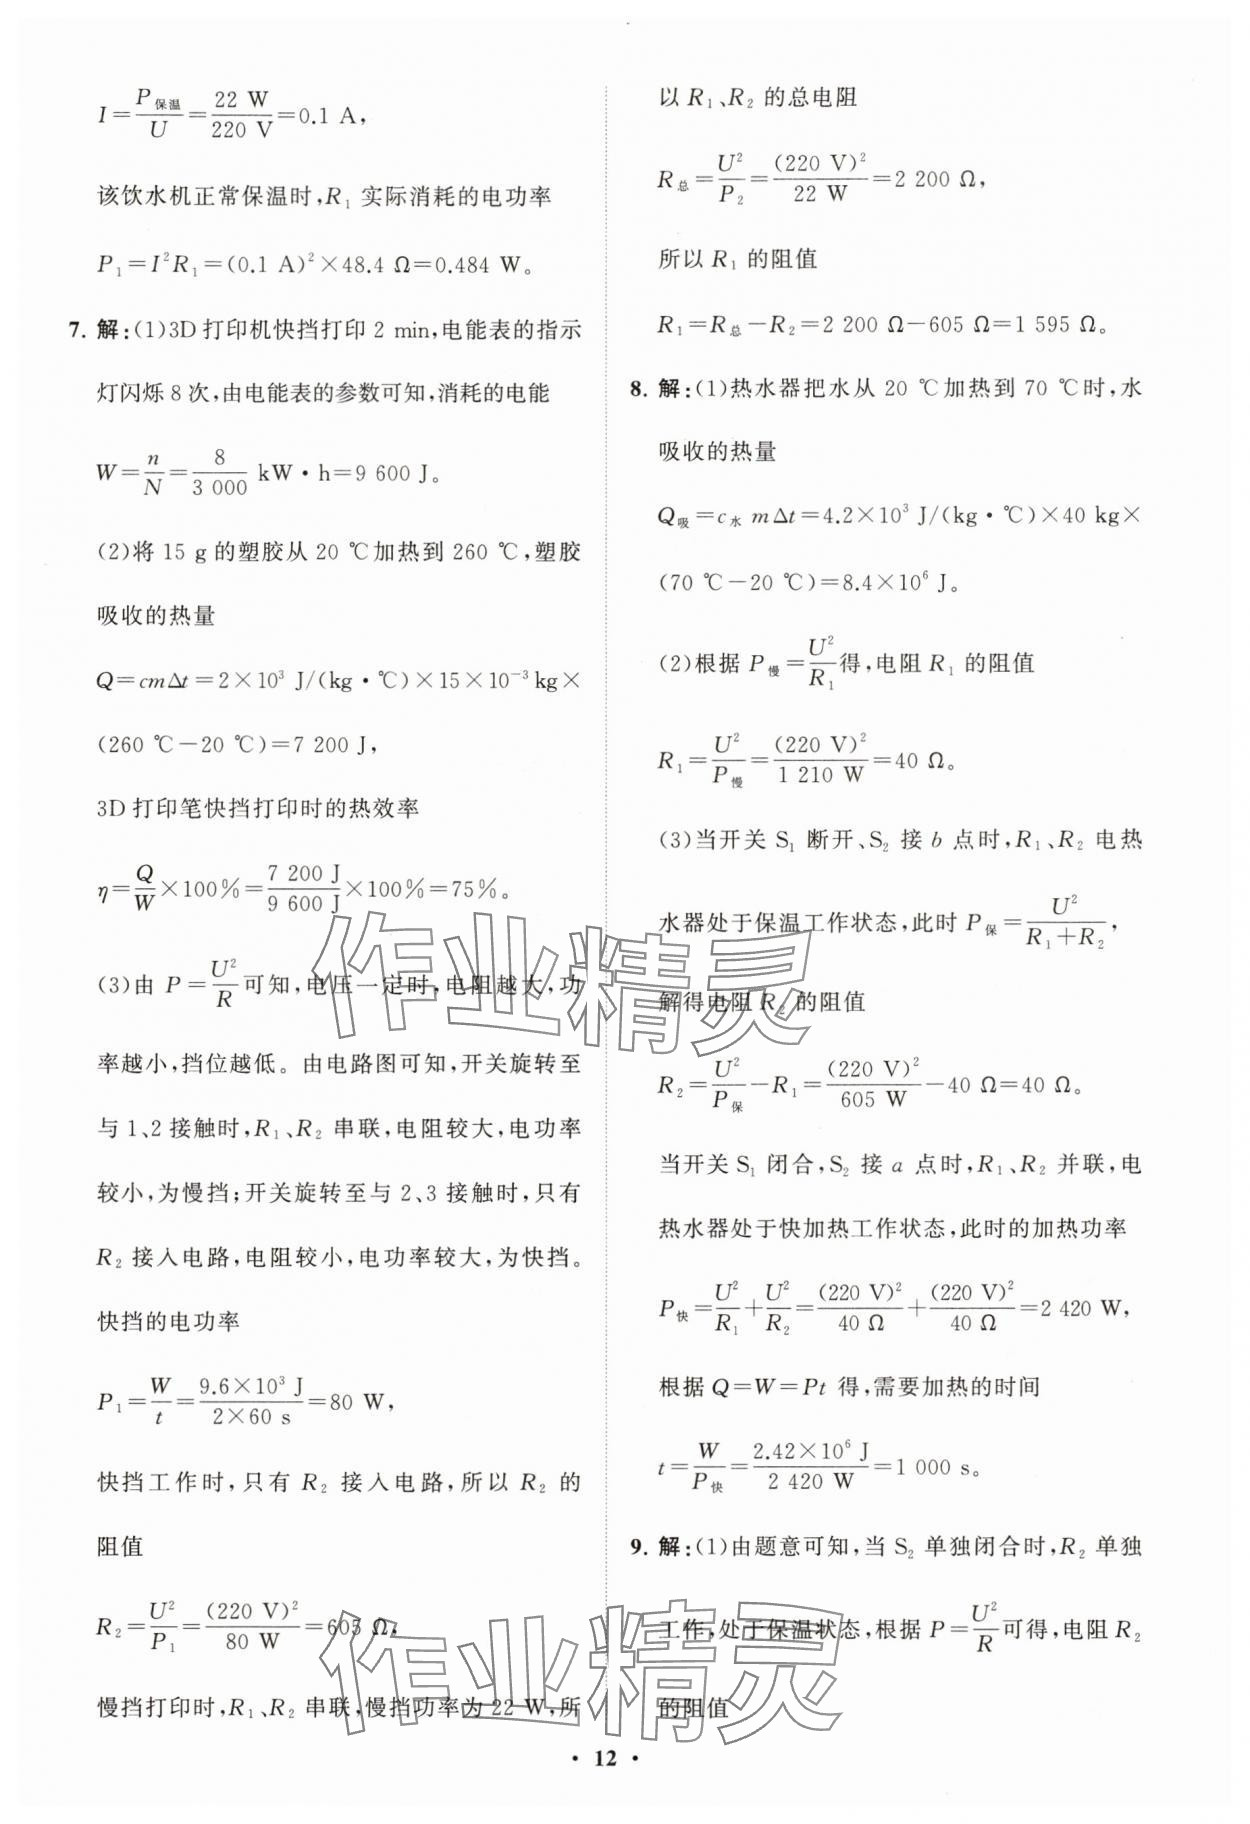 I=P保温/U=22 W/220 V=0.1 A,
该饮水机正常保温时,R₁ 实际消耗的电功率
P₁=I²R₁=(0.1 A)²×48.4 Ω=0.484 W。
7. 解:(1)3D 打印机快挡打印 2 min,电能表的指示
灯闪烁 8 次,由电能表的参数可知,消耗的电能
W=n/N=8/3 000 kW·h=9 600 J。
(2)将 15 g 的塑胶从 20 ℃加热到 260 ℃,塑胶
吸收的热量
Q=cmΔt=2×10³ J/(kg·℃)×15×10⁻³kg×
(260 ℃-20 ℃)=7 200 J,
3D 打印笔快挡打印时的热效率
η=Q/W×100%=7 200 J/9 600 J×100%=75%。
(3)由 P=U²/R可知,电压一定时,电阻越大,功
率越小,挡位越低。由电路图可知,开关旋转至
与 1、2 接触时,R₁、R₂ 串联,电阻较大,电功率
较小,为慢挡;开关旋转至与 2、3 接触时,只有
R₂ 接入电路,电阻较小,电功率较大,为快挡。
快挡的电功率
P₁=W/t=9.6×10³ J/2×60 s=80 W,
快挡工作时,只有 R₂ 接入电路,所以 R₂ 的
阻值
R₂=U²/P₁=(220 V)²/80 W=605 Ω,
慢挡打印时,R₁、R₂ 串联,慢挡功率为 22 W,所
以 R₁、R₂ 的总电阻
R总=U²/P₂=(220 V)²/22 W=2 200 Ω,
所以 R₁ 的阻值
R₁=R总-R₂=2 200 Ω-605 Ω=1 595 Ω。
8. 解:(1)热水器把水从 20 ℃加热到 70 ℃时,水
吸收的热量
Q吸=c水 mΔt=4.2×10³ J/(kg·℃)×40 kg×
(70 ℃-20 ℃)=8.4×10⁶ J。
(2)根据 P慢=U²/R₁得,电阻 R₁ 的阻值
R₁=U²/P慢=(220 V)²/1 210 W=40 Ω。
(3)当开关 S₁ 断开、S₂ 接 b 点时,R₁、R₂ 电热
水器处于保温工作状态,此时 P保=U²/R₁+R₂,
解得电阻 R₂ 的阻值
R₂=U²/P保-R₁=(220 V)²/605 W-40 Ω=40 Ω。
当开关 S₁ 闭合,S₂ 接 a 点时,R₁、R₂ 并联,电
热水器处于快加热工作状态,此时的加热功率
P快=U²/R₁+U²/R₂=(220 V)²/40 Ω+(220 V)²/40 Ω=2 420 W,
根据 Q=W=Pt 得,需要加热的时间
t=W/P快=2.42×10⁶ J/2 420 W=1 000 s。
9. 解:(1)由题意可知,当 S₂ 单独闭合时,R₂ 单独
工作,处于保温状态,根据 P=U²/R可得,电阻 R₂
的阻值
· 12 ·
作业精灵
作业精灵